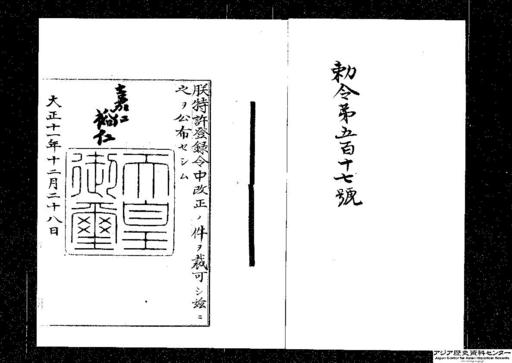 勅令第五百十七號
朕特許登録令中改正ノ件ヲ裁可シ玆ニ
之ヲ公布セシム
嘉仁
裕仁
天皇御璽
大正十一年十二月二十八日
アジア歴史資料センター
Japan Center for Asian Historical Records